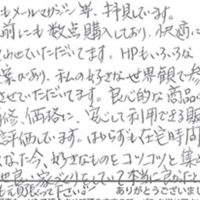 もメールマガジン等、拝見しています。
前にも数点購入しており、快適に
わせていただいてます。HPもいろいろな
案があり、私の好きな世界観で参
させていただいてます。良心的な商品の
格、価格に、安心して利用できる点
評価しています。はからずも在宅時間
なった今、好きなものをコツコツと集め
良い家づくりをしていて本当に良かった
ありがとうございまし